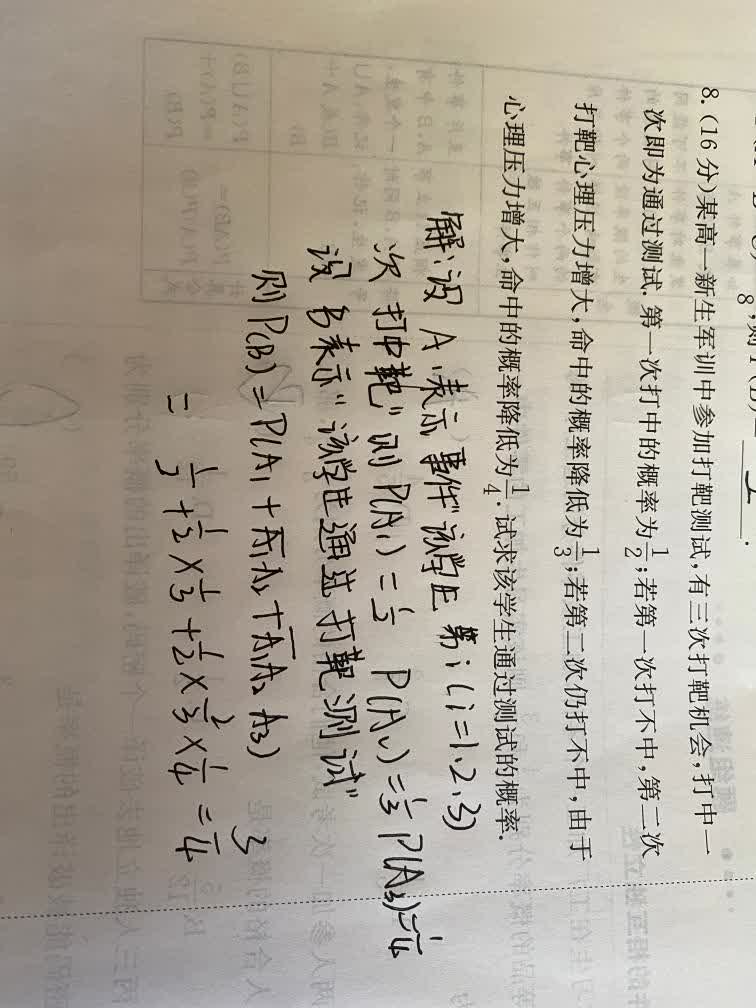 8.(16分)某高一新生军训中参加打靶测试,有三次打靶机会,打中一
次即为通过测试.第一次打中的概率为1/2;若第一次打不中,第二次
打靶心理压力增大,命中的概率降低为1/3;若第二次仍打不中,由于
心理压力增大,命中的概率降低为1/4.试求该学生通过测试的概率.
解:设A表示事件"该学生第i(i=1、2、3)
次打中靶"则P(A₁)=1/2 P(A₂)=1/3 P(A₃)=1/4
设B表示"该学生通过打靶测试"
则P(B)=P(A₁+A̅₁A₂+A̅₁A̅₂A₃)
=1/2+1/2×1/3+1/2×2/3×1/4=3/4